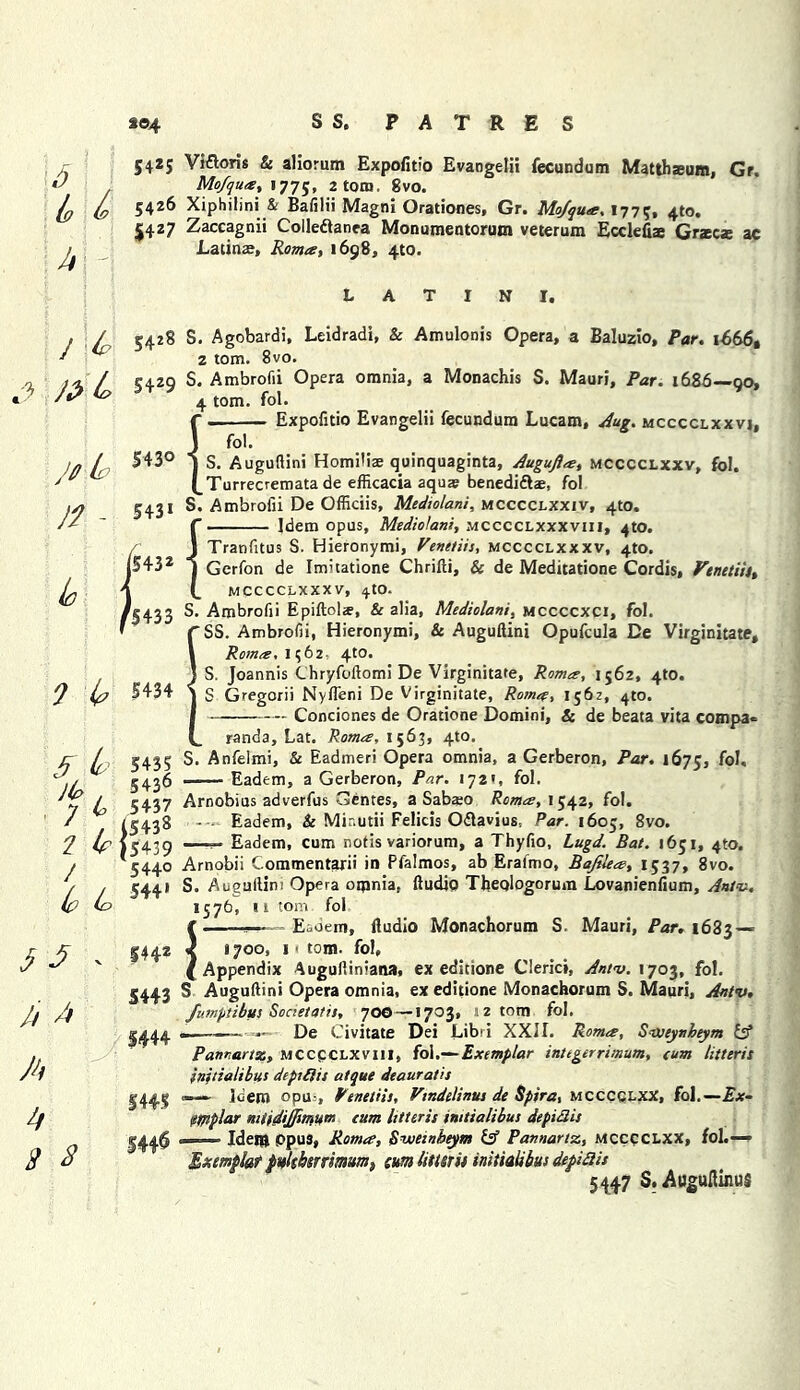 204 S S. P A T R E S
5425 Victoris & aliorum Expoſitio Evangelii ſecundum Matthæum, Gr.
Moſquæ, 1775, 2 tom. 8vo.
5426 Xiphilini & Baſilii Magni Orationes, Gr. Moſquæ, 1775, 4to.
5427 Zaccagnii Collectanea Monumentorum veterum Eccleſiæ Græcæ ac
Latinæ, Romæ, 1698, 4to.
L A T I N I.
5428 S. Agobardi, Leidradi, & Amulonis Opera, a Baluzio, Par. 1666,
2 tom. 8vo.
5429 S. Ambroſii Opera omnia, a Monachis S. Mauri, Par. 1686—90,
4 tom. fol.
—— Expoſitio Evangelii ſecundum Lucam, Aug. MCCCCLXXVI,
fol.
5430 S. Auguſtini Homiliæ quinquaginta, Auguſtæ, MCCCCLXXV, fol.
Turrecremata de efficacia aquæ benedictæ, fol
5431 S. Ambroſii De Officiis, Mediolani, MCCCCLXXIV, 4to.
—— Idem opus, Mediolani, MCCCCLXXXVIII, 4to.
5432 Tranſitus S. Hieronymi, Venetiis, MCCCCLXXXV, 4to.
Gerſon de Imitatione Chriſti, & de Meditatione Cordis, Venetiis,
MCCCCLXXXV, 4to.
5433 S. Ambroſii Epiſtolæ, & alia, Mediolani, MCCCCXCI, fol.
SS. Ambroſii, Hieronymi, & Auguſtini Opuſcula De Virginitate,
Romæ, 1562, 4to.
S. Joannis Chryſoſtomi De Virginitate, Romæ, 1562, 4to.
5434 S Gregorii Nyſſeni De Virginitate, Romæ, 1562, 4to.
—— Conciones de Oratione Domini, & de beata vita compa-
randa, Lat. Romæ, 1563, 4to.
5435 S. Anſelmi, & Eadmeri Opera omnia, a Gerberon, Par. 1675, fol.
5436 —— Eadem, a Gerberon, Par. 1721, fol.
5437 Arnobius adverſus Gentes, a Sabæo Romæ, 1542, fol.
5438 —— Eadem, & Minutii Felicis Octavius, Par. 1605, 8vo.
5439 —— Eadem, cum notis variorum, a Thyſio, Lugd. Bat. 1651, 4to.
5440 Arnobii Commentarii in Pſalmos, ab Eraſmo, Baſileæ, 1537, 8vo.
5441 S. Auguſtini Opera omnia, ſtudio Theologorum Lovanienſium, Antv.
1576, 11 tom fol
—— Eadem, ſtudio Monachorum S. Mauri, Par. 1683—
5442 1700, 11 tom. fol.
Appendix Auguſtiniana, ex editione Clerici, Antv. 1703, fol.
5443 S Auguſtini Opera omnia, ex editione Monachorum S. Mauri, Antv.
ſumptibus Societatis, 1700—1703, 12 tom fol.
5444 —— De Civitate Dei Libri XXII. Romæ, Sweynheym &
Pannartz, MCCCCLXVIII, fol.—Exemplar integerrimum, cum litteris
initialibus depictis atque deauratis
5445 —— Idem opus, Venetiis, Vindelinus de Spira, MCCCCLXX, fol.—Ex-
emplar nitidiſſimum cum litteris initialibus depictis
5446 —— Idem opus, Romæ, Sweinheym & Pannartz, MCCCCLXX, fol.—
Exemplar pulcherrimum, cum litteris initialibus depictis
5447 S. Auguſtinus